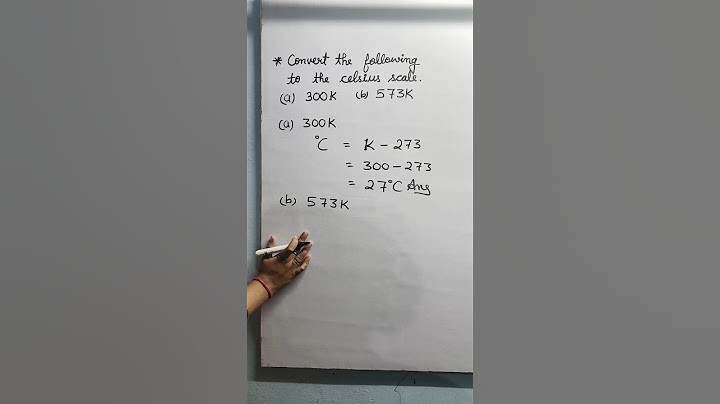 * Convert the following
to the celsius scale.
(a) 300K (b) 573K
(a) 300K
°C = K - 273
= 300-273
= 27°C Ans
(b) 573K